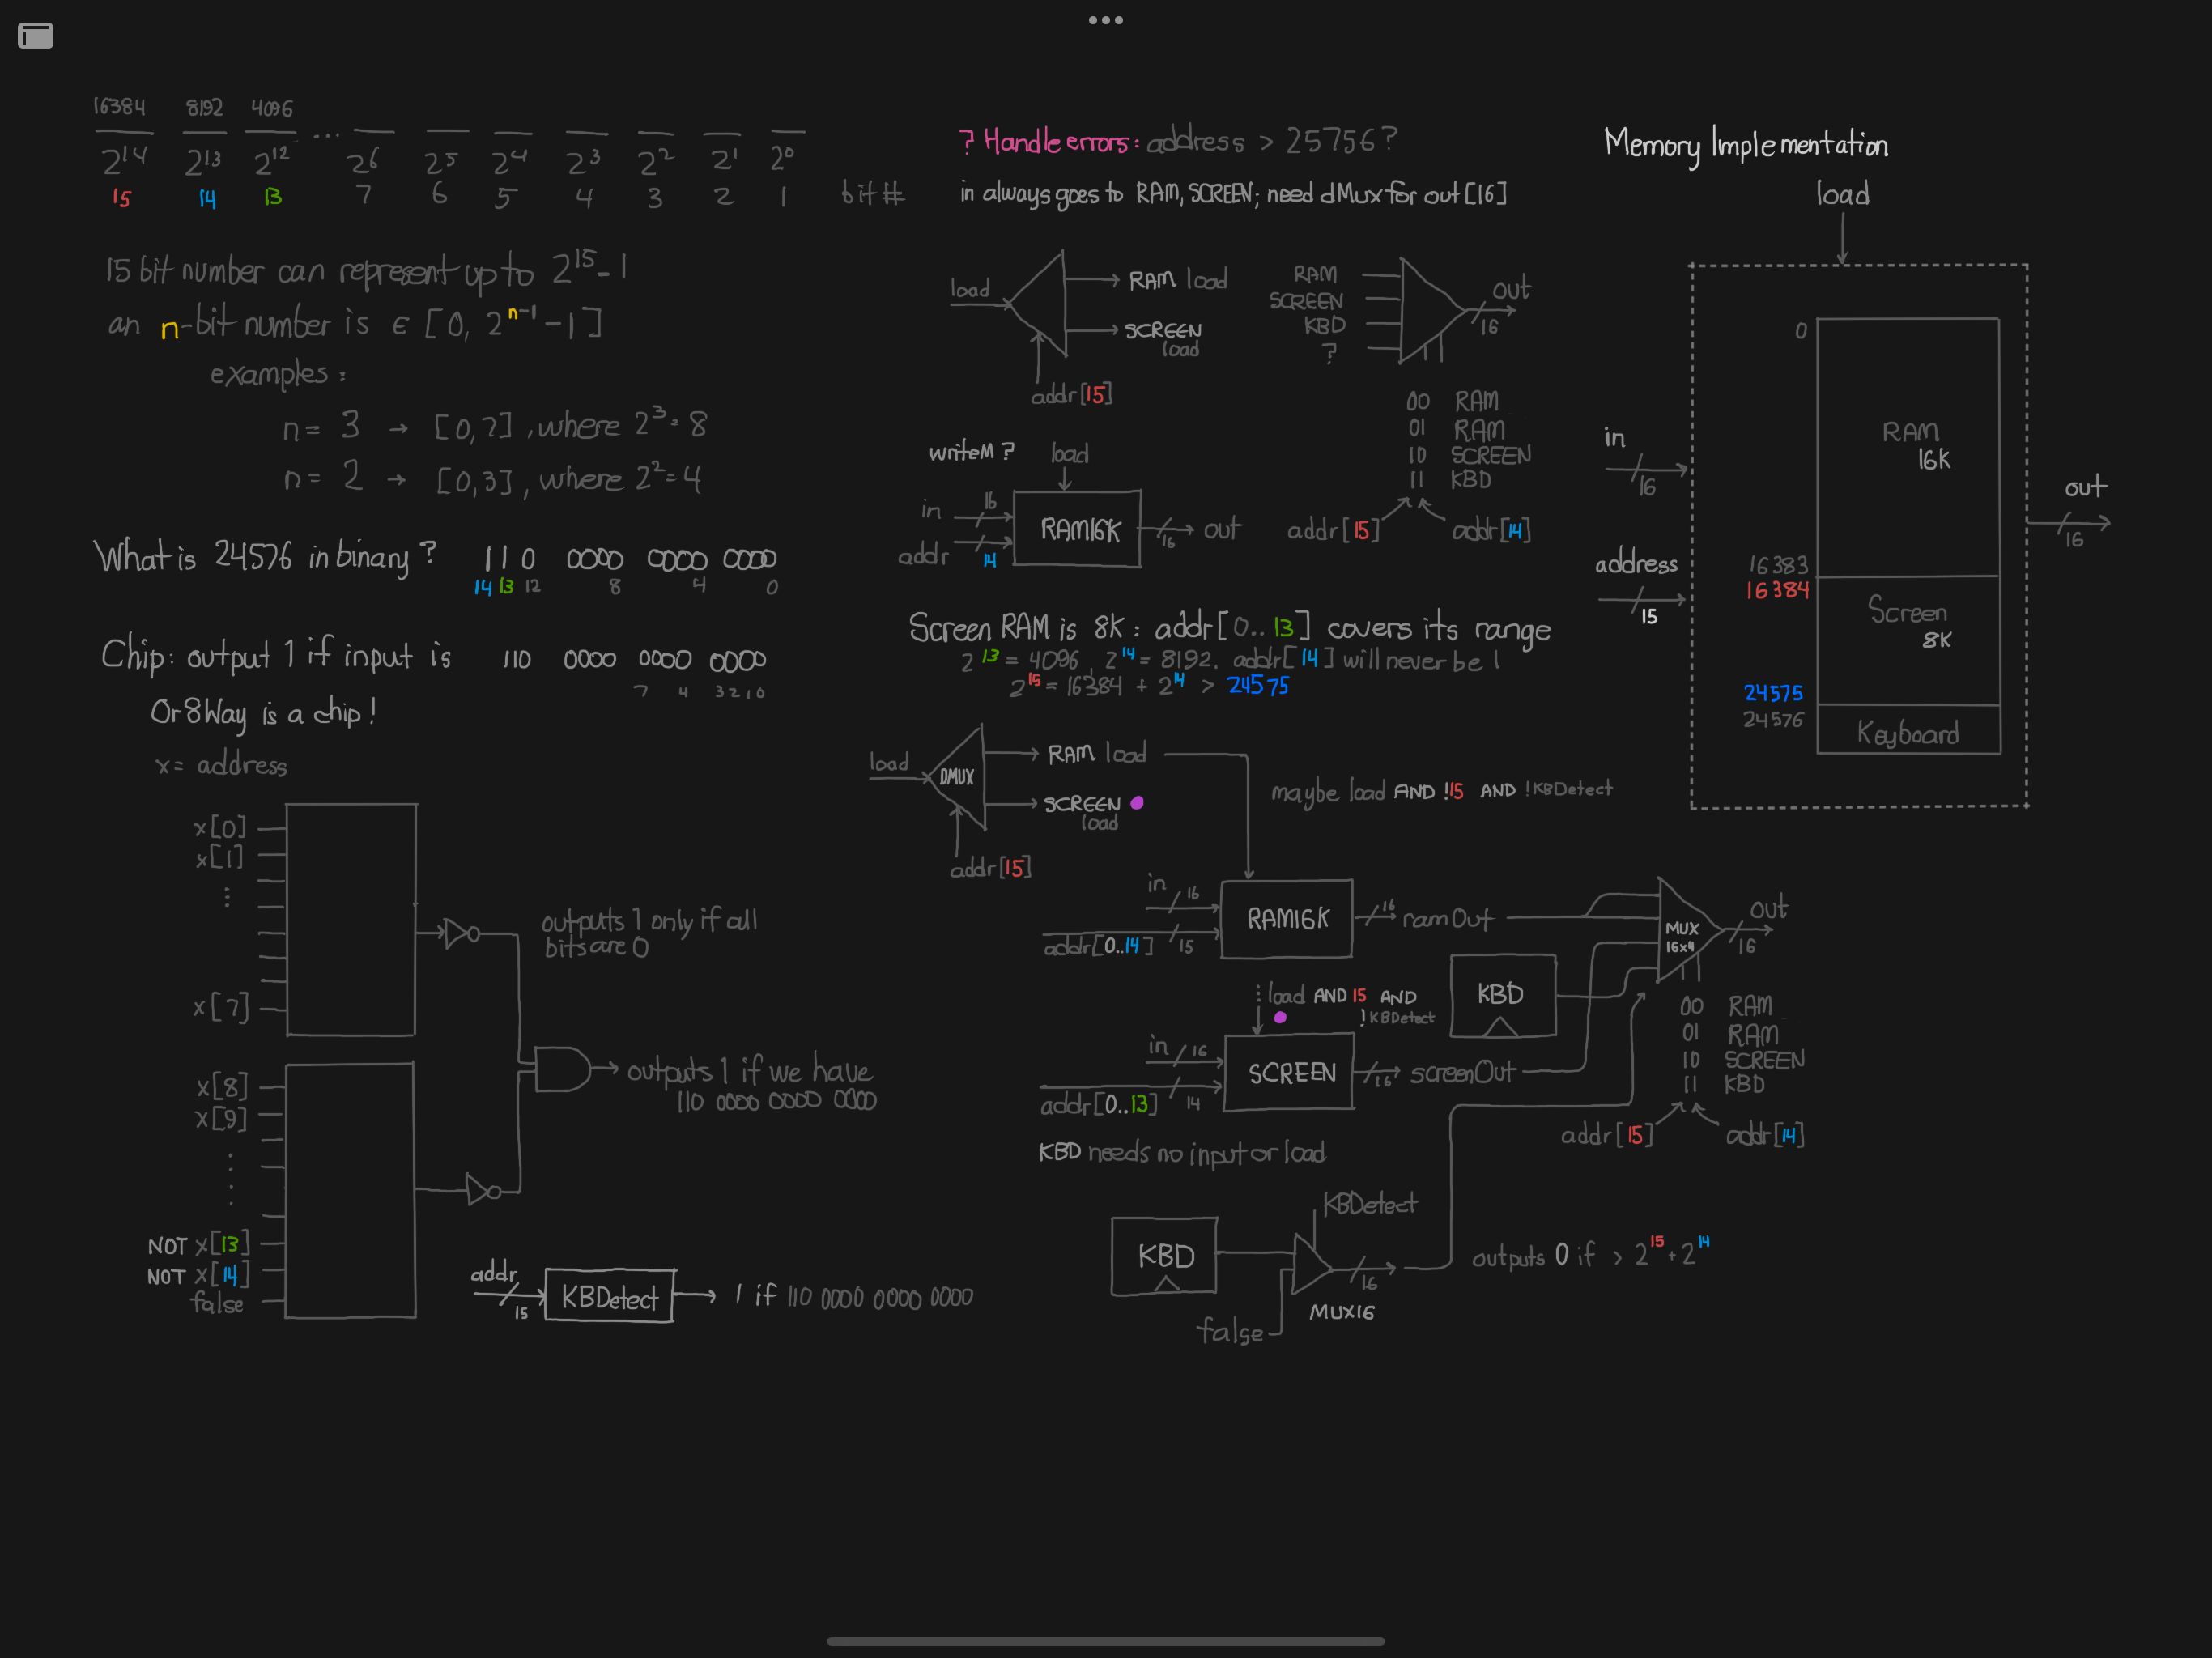 16384 8192 4096
2^14 2^13 2^12 ... 2^6 2^5 2^4 2^3 2^2 2^1 2^0
15 14 13 7 6 5 4 3 2 1 bit #
15 bit number can represent up to 2^15 - 1
an n-bit number is ∈ [0, 2^n-1 - 1]
examples:
n = 3 → [0,7], where 2^3 = 8
n = 2 → [0,3], where 2^2 = 4
What is 24576 in binary? 110 0000 0000 0000
14 13 12 8 4 0
Chip: output 1 if input is 110 0000 0000 0000
7 4 3 2 1 0
Or8Way is a chip!
x = address
x[0]
x[1]
⋮
x[7]
outputs 1 only if all
bits are 0
x[8]
x[9]
⋮
NOT x[13]
NOT x[14]
false
outputs 1 if we have
110 0000 0000 0000
addr
15
KBDetect
1 if 110 0000 0000 0000
? Handle errors: address > 25756?
in always goes to RAM, SCREEN; need dMux for out[16]
load
RAM load
SCREEN
load
addr[15]
RAM
SCREEN
KBD
?
out
16
00 RAM
01 RAM
10 SCREEN
11 KBD
addr[15] addr[14]
writeM? load
in 16
addr 14
RAM16K
16 out
Screen RAM is 8K: addr[0..13] covers its range
2^13 = 4096, 2^14 = 8192. addr[14] will never be 1
2^15 = 16384 + 2^14 > 24575
load
DMUX
RAM load
SCREEN
load
addr[15]
maybe load AND !15 AND !KBDetect
in 16
addr[0..14] 15
RAM16K
16 ramOut
: load AND 15 AND
!KBDetect
in 16
addr[0..13] 14
SCREEN
16 screenOut
KBD
MUX
16x4
out
16
00 RAM
01 RAM
10 SCREEN
11 KBD
addr[15] addr[14]
KBD needs no input or load
KBDetect
KBD
false
16
MUX16
outputs 0 if > 2^15 + 2^14
Memory Implementation
load
in
16
address
15
0
RAM
16K
16383
16384
Screen
8K
24575
24576
Keyboard
out
16